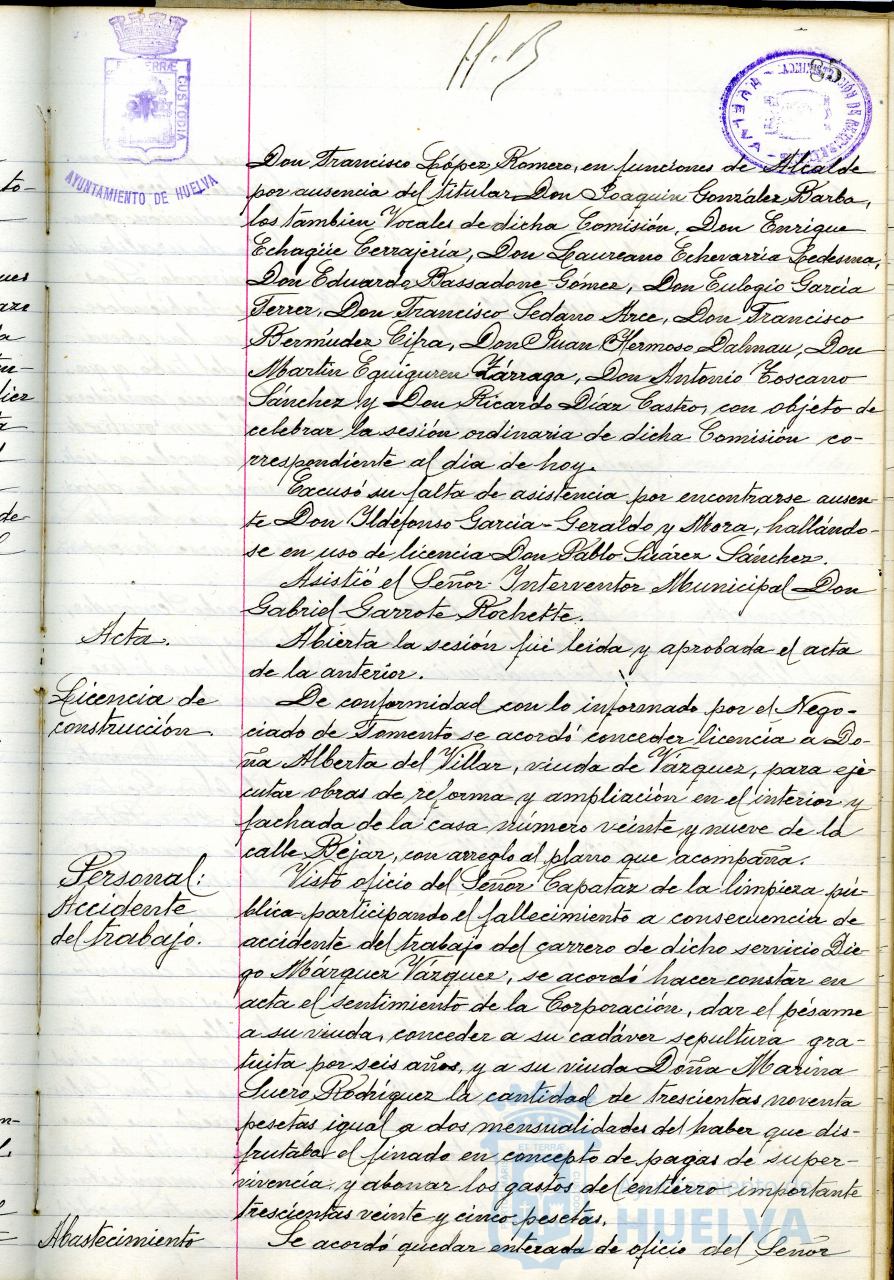 H. B
85
AYUNTAMIENTO DE HUELVA
CUSTODIA
Don Francisco López Romero, en funciones de Alcalde
por ausencia del titular Don Joaquin González Barba,
los tambien Vocales de dicha Comisión, Don Enrique
Echagüe Cerrajería, Don Laureano Echevarría Ledesma,
Don Eduardo Bassadone Gómez, Don Eulogio García
Ferrer, Don Francisco Sedano Arce, Don Francisco
Bermúdez Cifra, Don Juan Hermoso Dalmau, Don
Martín Eguiguren Zárraga, Don Antonio Toscano
Sánchez y Don Ricardo Díaz Castro, con objeto de
celebrar la sesión ordinaria de dicha Comisión co-
rrespondiente al dia de hoy.
Excusó su falta de asistencia por encontrarse ausen-
te Don Ildefonso García-Geraldo y Mora, hallándo-
se en uso de licencia Don Pablo Suárez Sánchez.
Asistió el Señor Interventor Municipal Don
Gabriel Garrote Rochette.
Acta.
Abierta la sesión fué leida y aprobada el acta
de la anterior.
Licencia de
construcción.
De conformidad con lo informado por el Nego-
ciado de Fomento se acordó conceder licencia a Do-
ña Alberta del Villar, viuda de Vázquez, para eje-
cutar obras de reforma y ampliación en el interior y
fachada de la casa número veinte y nueve de la
calle Béjar, con arreglo al plano que acompaña.
Personal:
Accidente
del trabajo.
Visto oficio del Señor Capataz de la limpieza pú-
blica participando el fallecimiento a consecuencia de
accidente del trabajo del carrero de dicho servicio Die-
go Márquez Vázquez, se acordó hacer constar en
acta el sentimiento de la Corporación, dar el pésame
a su viuda, conceder a su cadáver sepultura gra-
tuita por seis años, y a su viuda Doña Marina
Suero Rodríguez la cantidad de trescientas noventa
pesetas igual a dos mensualidades del haber que dis-
frutaba el finado en concepto de pagas de super-
vivencia y abonar los gastos del entierro importante
trescientas veinte y cinco pesetas.
Abastecimiento
Se acordó quedar enterada de oficio del Señor
Ayuntamiento de
HUELVA